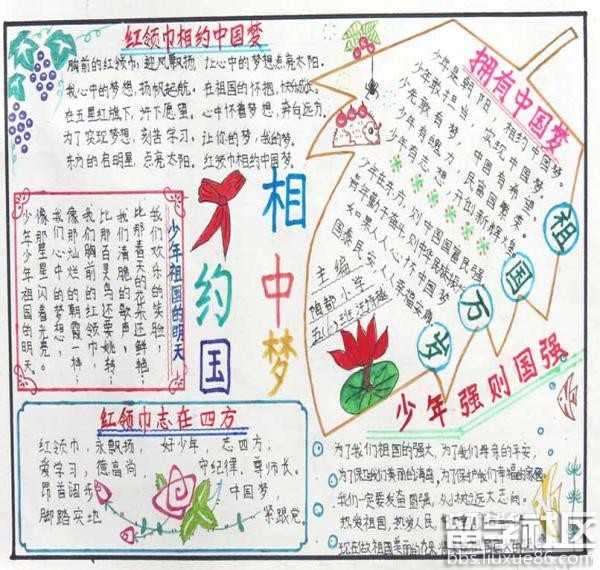 红领巾相约中国梦
胸前的红领巾,迎风飘扬,让心中的梦想点亮太阳。
我心中的梦想,扬帆起航。在祖国的怀抱,快乐成长。
在五星红旗下,许下愿望。心中怀着梦想,奔向远方。
为了实现梦想,刻苦学习,让你的梦,我的梦。
东方的名明星,点亮太阳。红领巾相约中国梦。
拥有中国梦
少年是朝阳,相约中国梦。
少年敢担当,实现中国梦。
少先敢有梦,中国有希望。
少年有魄力,民富国繁荣。
少年有志想,开创新辉煌。
少年在东方,则中国国富民强。
青年勤于奋斗,则中华民族
如果人人心怀中国梦,
国泰民安,人人幸福安康
主编
陶都小学
五(6)班
祖国万岁
相约中国梦
少年祖国的明天
我们欢乐的笑脸,
比那春天的花朵还鲜艳;
我们清脆的歌声,
比那百灵鸟还要婉转;
我们胸前的红领巾,
像那灿烂的朝霞一样;
我们心中的梦想,
像那星星闪着光亮。
少年少年祖国的明天。
红领巾志在四方
红领巾,永飘扬,好少年,志四方,
爱学习,德高尚 守纪律,尊师长。
昂首阔步 中国梦,
脚踏实地 紧跟党。
少年强则国强
为了我们祖国的强大,为了我们母亲的平安,
为了保卫我们美丽的海岛,为了保护我们幸福的家园
我们一定要发奋图强,从小树立远大志向。
热爱祖国,热爱人民,
现在做祖国美丽的花朵
留学社区
bbs.liuxue86.com